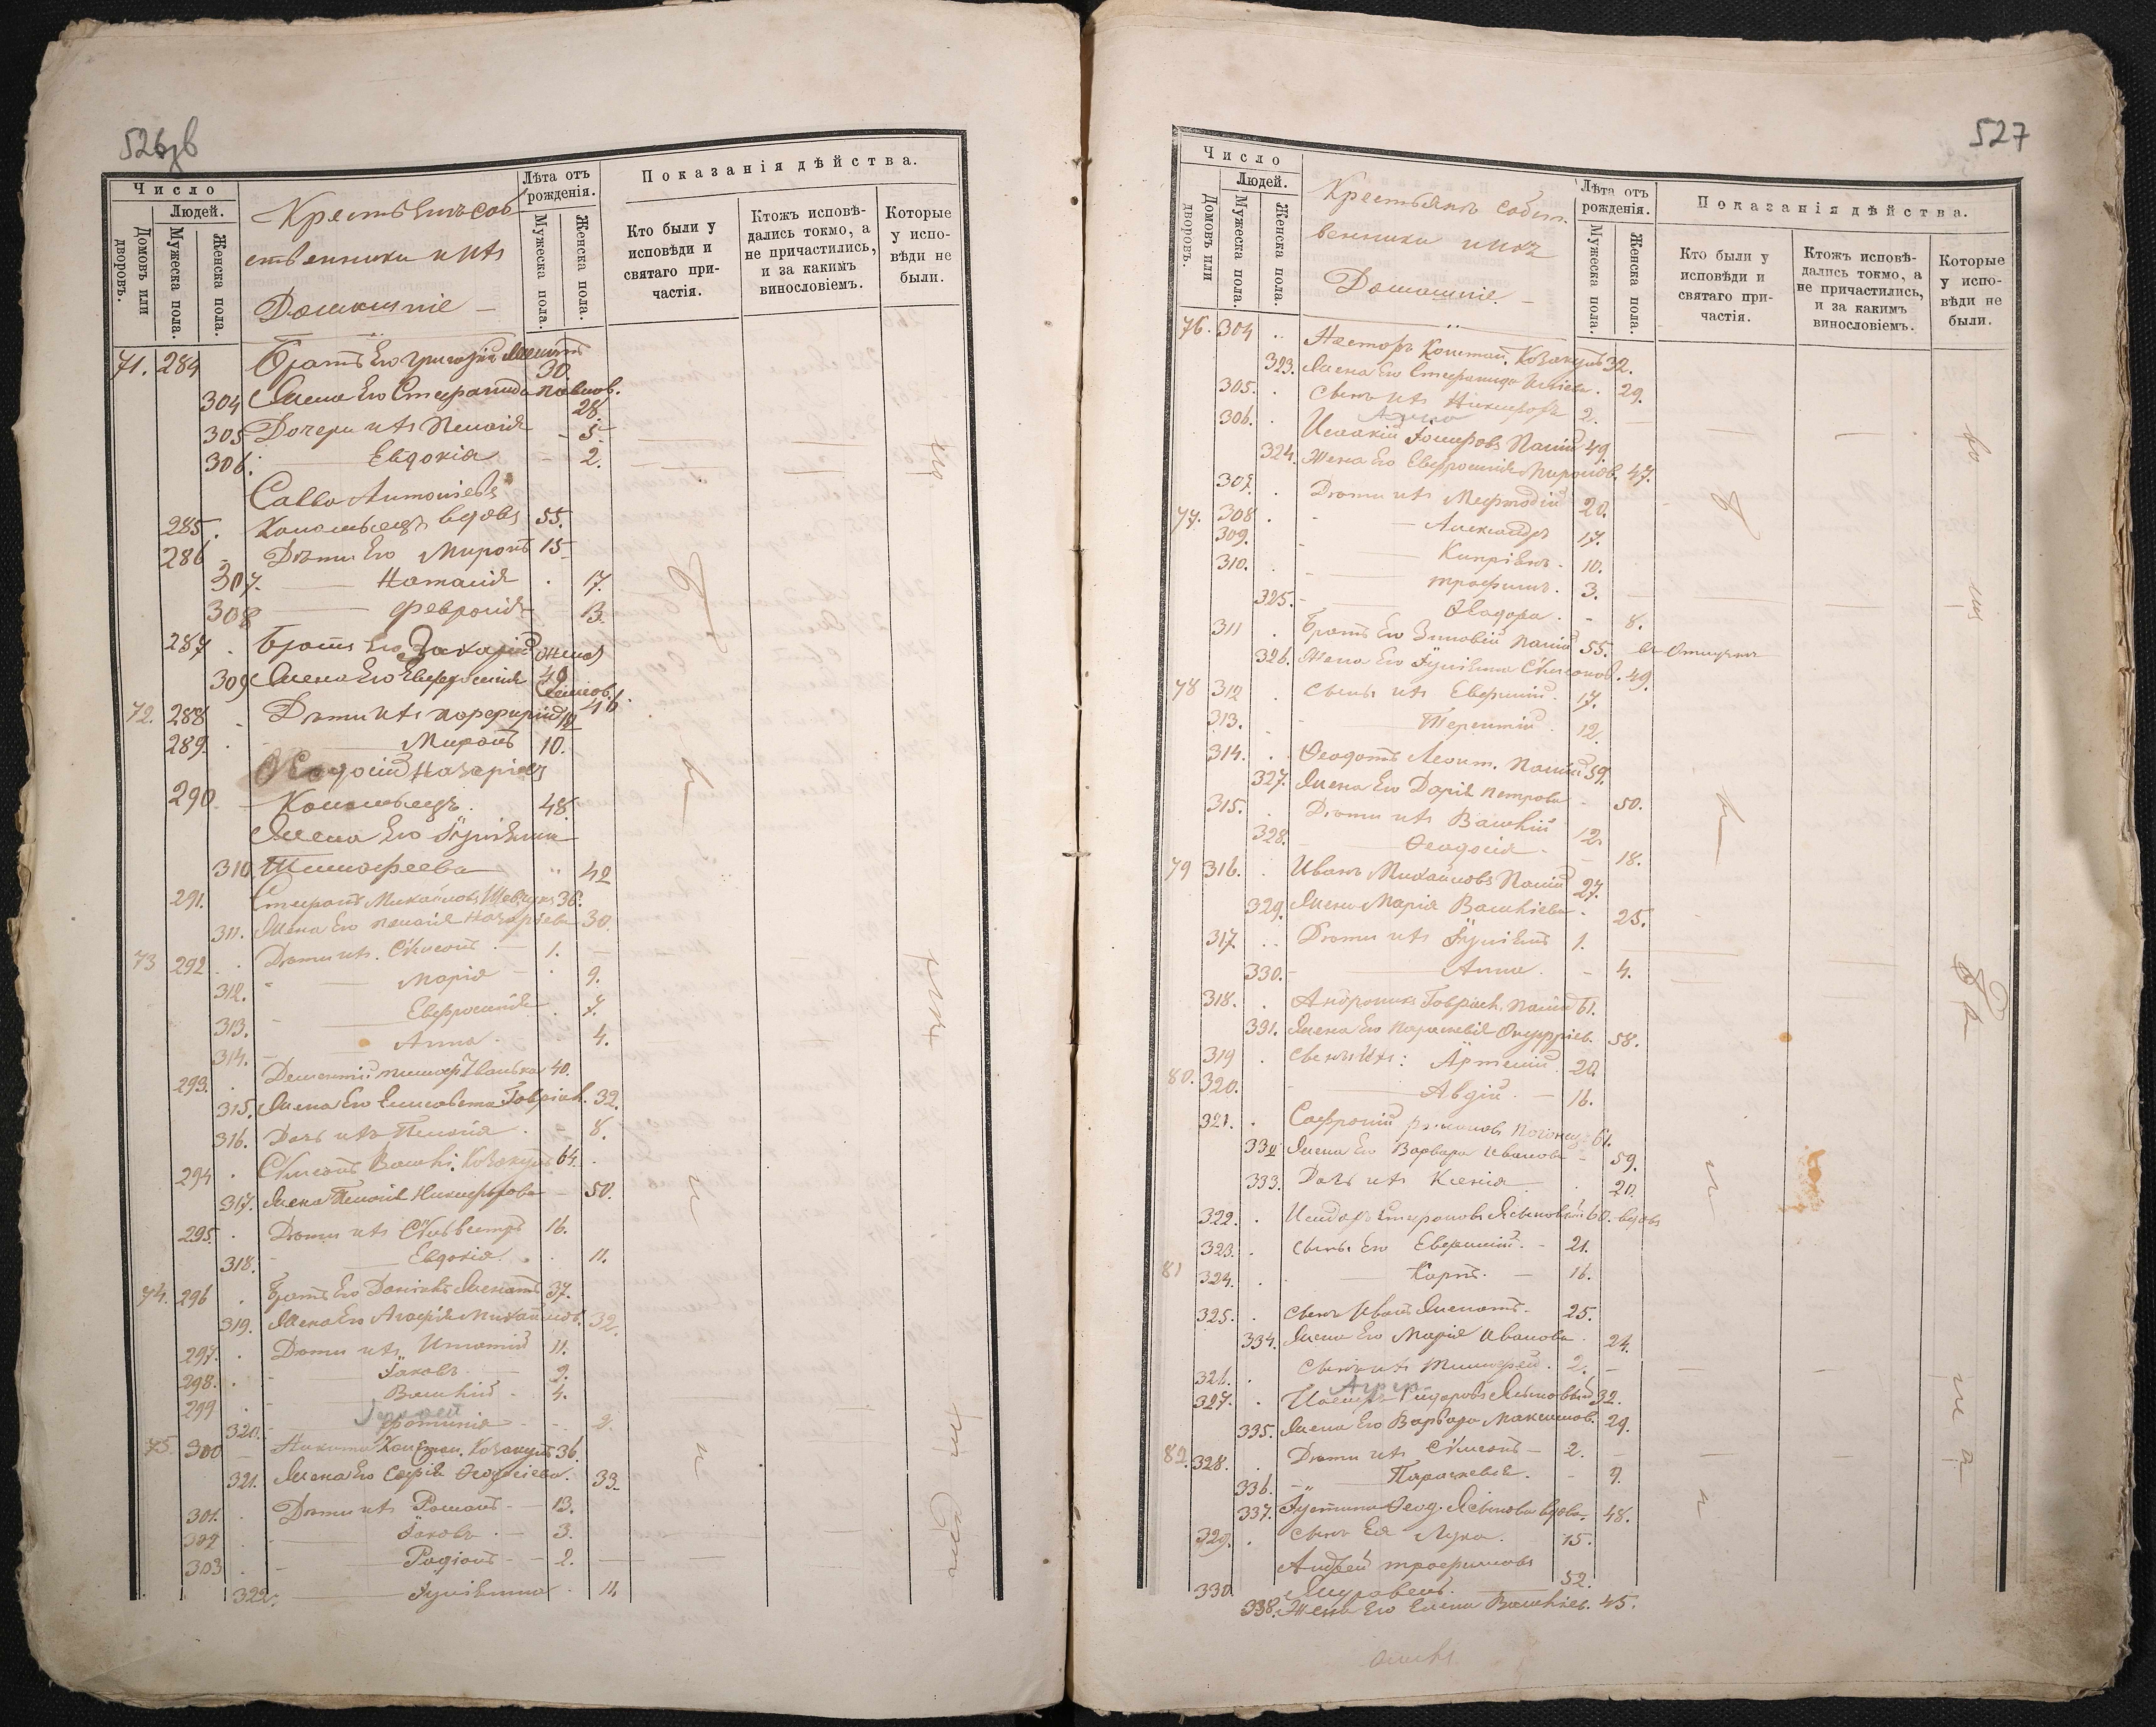 526зв
Число
Людей.
Домовъ или дворовъ.
Мужеска пола.
Женска пола.
Крестьянъ соб
ственники и ихъ
Домашніе
Лѣта отъ рожденія.
Мужеска пола.
Женска пола.
Показанія дѣйства.
Кто были у исповѣди и святаго причастія.
Ктожъ исповѣдались токмо, а не причастились, и за какимъ винословіемъ.
Которые у исповѣди не были.
71. 284 Братъ Его Григорій женатъ 30.
304 Жена Его Стефанида Павлов. 28.
305 Дочери ихъ Пелагія 5.
306. Евдокія 2.
Савва Антоніевъ
285. Коломыецъ вдовъ 55.
286 Дѣти Его Миронъ 15
307. Наталія 17.
308 Февронія 13.
287 Братъ Его Захарій женат 49
309 Жена Его Евфросинія 46.
72. 288 Дѣти ихъ Порфирій
289. Миронъ 10.
Феодосій Назаріев
290 Коломыецъ. 48.
Жена Его Іуліанна
310 Тимофеева 42
291. Стефанъ Михайловъ Шевчукъ 36.
311. Жена Его Пелагія Назаріева 30.
73 292 Дѣти ихъ. Симеонъ 1.
312. Марія 9.
313. Евфросинія 7.
314. Анна 4.
293. Дементій Тимоф. Иванька 40.
315. Жена Его Елисавета Гавріил. 32.
316. Дочь ихъ Пелагія 8.
294 Симеонъ Василі. Козакулъ 64.
317. Жена Пелагія Никифорова 50.
295. Дѣти ихъ Сильвестръ 16.
318. Евдокія 11.
74. 296 Братъ Его Даніилъ Женатъ 37.
319. Жена Его Агафія Михайлов. 32.
297. Дѣти ихъ Игнатій 11.
298. Іаковъ 9.
299 Василій 4.
320. Фотинія 2.
75. 300 Никита Констан. Козакулъ 36.
321. Жена Его Софія Феодосіева. 33.
301. Дѣти ихъ Романъ 13.
302 Іаковъ 3.
303 Родіонъ 2.
322. Іуліанна 11.
527
Число
Людей.
Домовъ или дворовъ.
Мужеска пола.
Женска пола.
Крестьянъ собст.
венники и ихъ
Домашніе
Лѣта отъ рожденія.
Мужеска пола.
Женска пола.
Показанія дѣйства.
Кто были у исповѣди и святаго причастія.
Ктожъ исповѣдались токмо, а не причастились, и за какимъ винословіемъ.
Которые у исповѣди не были.
76. 304 Несторъ Констан. Козакулъ 32.
323. Жена Его Стефанида Иліева. 29.
305. Сынъ ихъ Никифоръ 2.
306. Исаакій Іосифовъ Палій 49
324. Жена Его Евфросинія Миронов. 47.
307. Дѣти ихъ Мефтодій 20.
77. 308 Александръ 17.
309. Кипріянъ 10.
310. Трофимъ 3.
325. Феодора 8.
311 Братъ Его Зиновій Палій 55.
326. Жена Его Іуліанна Симеонов. 49.
78 312 Сыны ихъ Евфимій 17.
313. Терентій 12.
314. Феодотъ Леонт. Палій 59.
327. Жена Его Дарія Петрова 50.
315. Дѣти ихъ Василій 12
328. Феодосія 18.
79 316. Иванъ Михайловъ Палій 27.
329. Жена Марія Василіева. 25.
317. Дѣти ихъ Іуліанъ 1.
330. Анна 4.
318. Андроникъ Гавріил. Палій 61.
331. Жена Его Параскевія Онуфріев. 58.
319 Сыны ихъ: Артемій 20
80. 320. Авдій 16.
321. Софроній Романовъ 61.
332 Жена Его Варвара Иванова 59.
333. Дочь ихъ Ксенія 20.
322. Исидоръ Стефановъ Ясыновый 60. вдовъ
323. Сыны Его Евфимій 21.
81 324. Карпъ 16.
325. Сынъ Иванъ Женатъ 25.
334. Жена Его Марія Иванова 24.
326. Сынъ ихъ Тимофей 2.
327. Іосифъ Сидоровъ Ясыновый 32.
335. Жена Его Варвара Максимов. 29.
82. 328. Дѣти ихъ Симеонъ 2.
336. Параскевія 9.
337. Іустина Феод. Ясынова вдова. 48.
329. Сынъ Ея Лука 15.
Андрей Трофимовъ
330 Журавель. 52.
338. Жена Его Елена Василіев. 45.